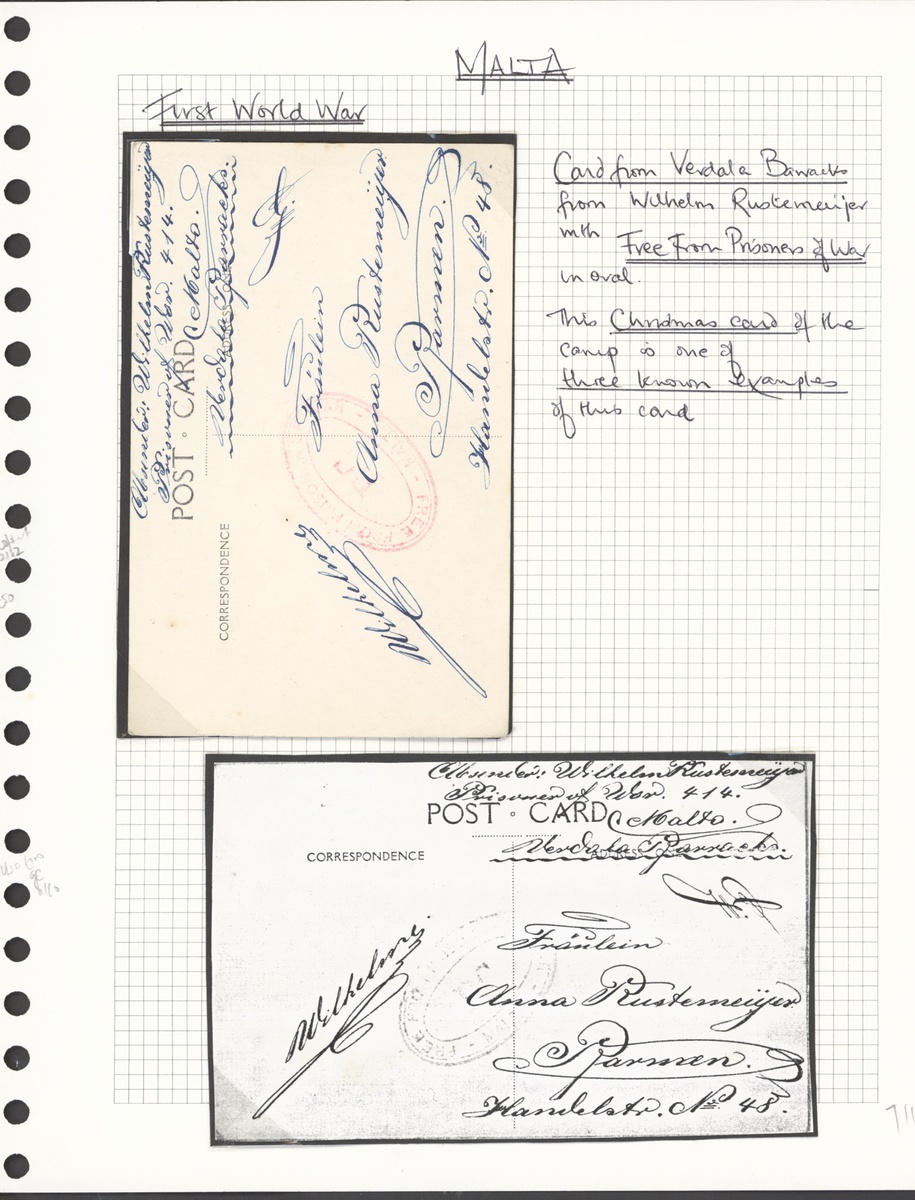 MALTA
First World War
Card from Verdala Barracks
from Wilhelm Rustemeijer
with Free From Prisoners of War
in oval.
This Christmas card of the
camp is one of
three known examples
of this card
Absender: Wilhelm Rustemeijer
Prisoner of War. 414.
POST CARD Malta.
Verdala Barracks.
CORRESPONDENCE
Fräulein
Anna Rustemeijer
Barmen.
Handelstr. No 48.
Wilhelm
FREE FROM PRISONERS
Absender: Wilhelm Rustemeijer
Prisoner of War. 414.
POST CARD Malta.
Verdala Barracks.
CORRESPONDENCE
Fräulein
Anna Rustemeijer
Barmen.
Handelstr. No 48.
Wilhelm